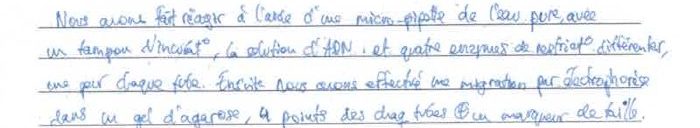 Nous avons fait réagir à l'aide d'une micro-pipette de l'eau pure, avec
un tampon d'incubat°, la solution d'ADN, et quatre enzymes de restrict° différentes,
une pour chaque tube. Ensuite nous avons effectué une migration par électrophorèse
dans un gel d'agarose, 4 points des tubes ⊕ un marqueur de taille.